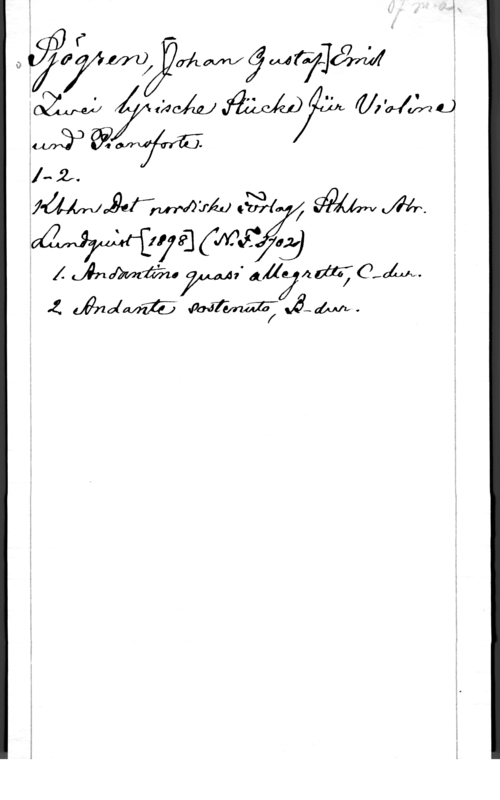 Sjögren, [Johan Gustaf] Emil
Zwei lyrische Stücke für Violine
und Pianoforte.
1-2.
Kbhn Det nordiske Forlag, Sthlm Abr.
Lundquist [1898] (N.F. 3702)
1. Andantino quasi allegretto, C-dur.
2 Andante sostenuto, B-dur.